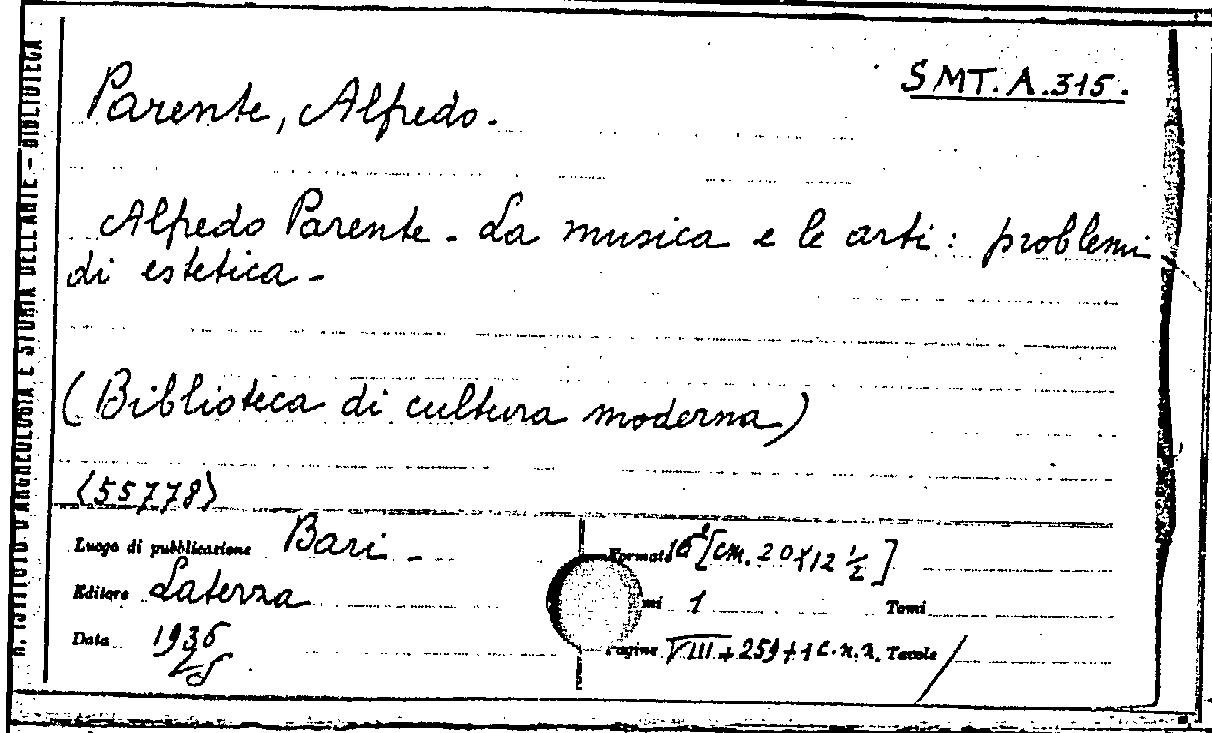 R. ISTITUTO D'ARCHEOLOGIA E STORIA DELL'ARTE - BIBLIOTECA
SMT. A. 315.
Parente, Alfredo.
Alfredo Parente - La musica e le arti: problemi
di estetica -
(Biblioteca di cultura moderna)
(55778)
Luogo di pubblicazione Bari - Formato [cm. 20x12 1/2]
Editore Laterza mi 1 Tomi
Data 1936 Pagine VIII+259+1 c.n.n. Tavole /